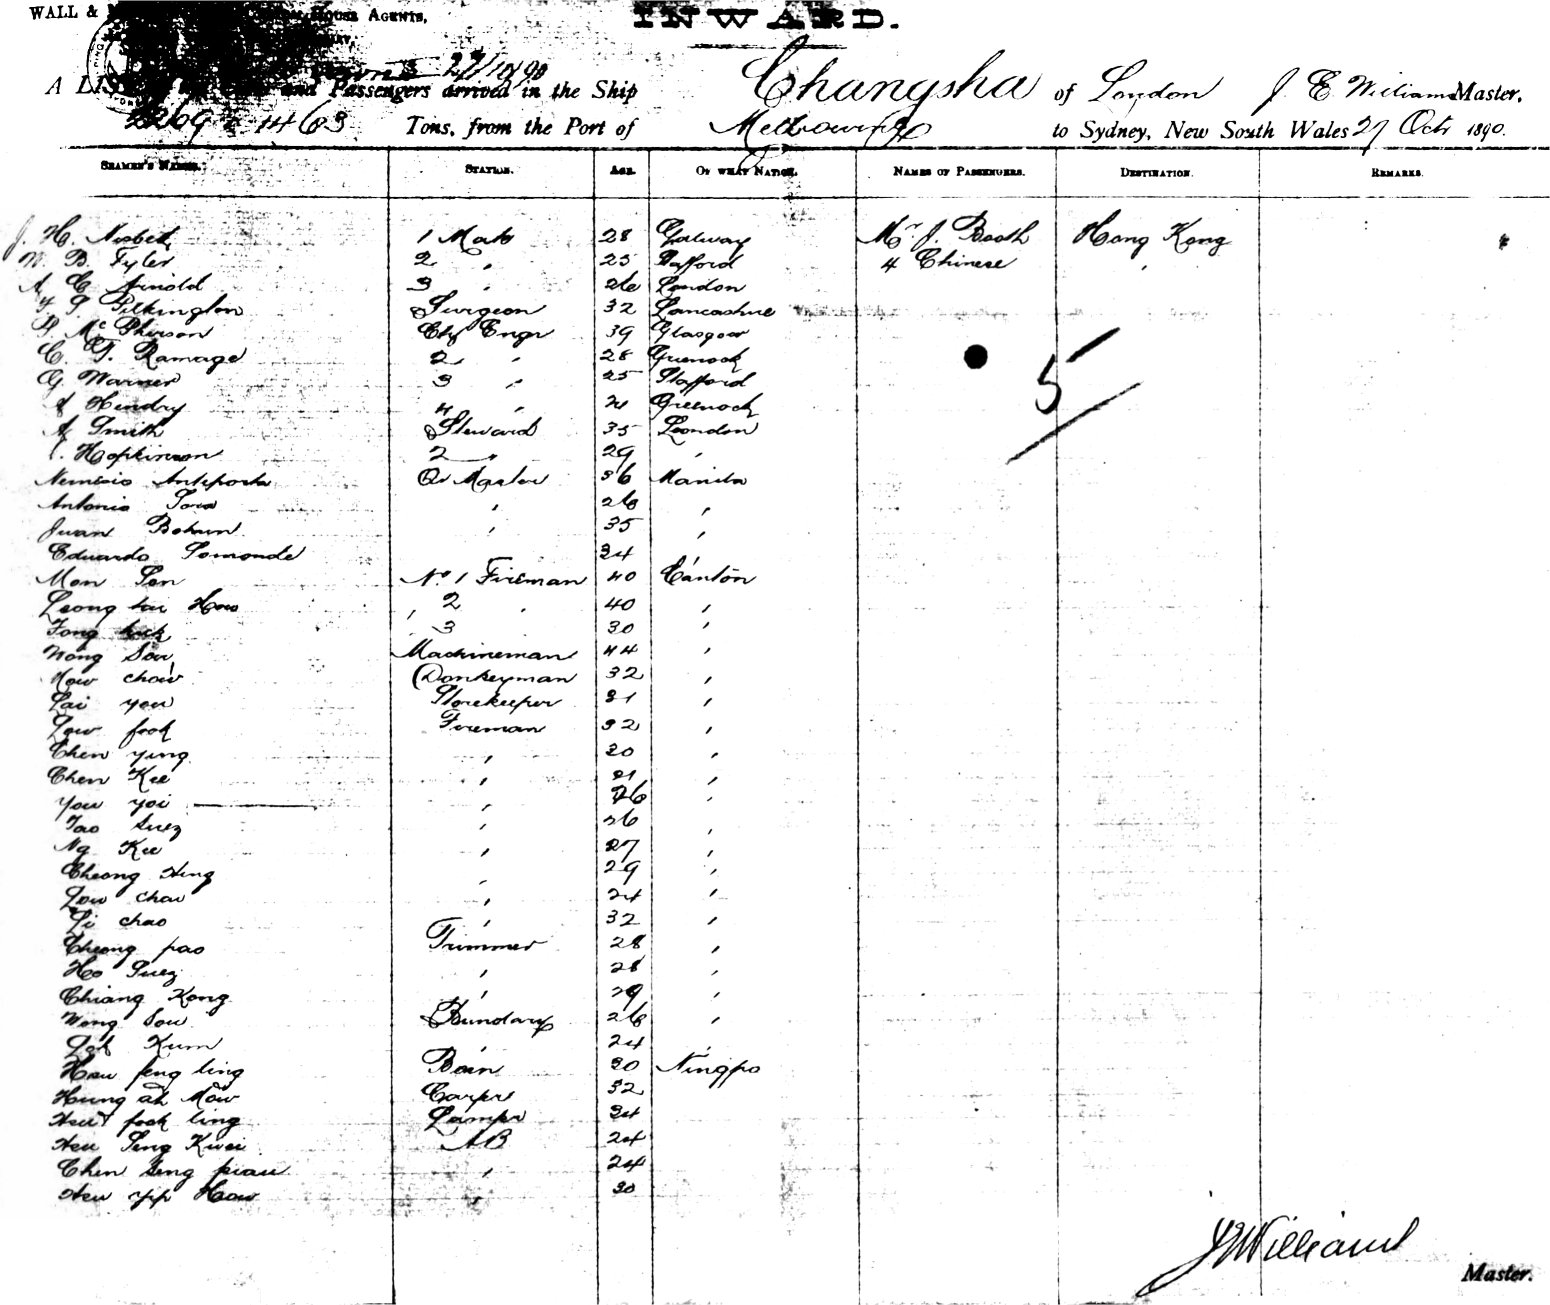 WALL & HOUSE AGENTS,
INWARD.
27/10/90
A LIST and Passengers arrived in the Ship Changsha of London J. E. Williams Master,
2269 1463 Tons, from the Port of Melbourne to Sydney, New South Wales 27 Octr 1890.
SEAMEN'S NAMES. STATION. AGE. OF WHAT NATION. NAMES OF PASSENGERS. DESTINATION. REMARKS.
J. H. Nisbet 1 Mate 28 Galway Mr. J. Booth Hong Kong
W. B. Tyler 2 " 25 Stafford 4 Chinese "
A C Arnold 3 " 26 London
F S Pilkington Surgeon 32 Lancashire
P. McPherson Chf Engr 39 Glasgow
C. T. Ramage 2 " 28 Greenock
G. Warner 3 " 25 Stafford
J Hendry 4 " 21 Greenock 5
A Smith Steward 35 London
Hopkinson 2 " 29 "
Nemesio Anteporta Qr Master 36 Manila
Antonio " 26 "
Juan Bohun " 35 "
Eduardo Somonde 34 "
Mon Sen No 1 Fireman 40 Canton
Leong tai How " 2 " 40 "
Fong 3 30 "
Wong Sow Machineman 44 "
How chow Donkeyman 32 "
Lai you Storekeeper 31 "
Low fook Fireman 32 "
Chen ying " 30 "
Chen Kee " 21 "
You yoi " 26 "
Tao Suey " 26 "
Ng Kee " 27 "
Cheong Hing " 29 "
Low chow " 24 "
Li chao " 32 "
Cheong pao Trimmer 28 "
Ho Suey " 28 "
Chiang Kong " 29 "
Wong Sow Bundary 26 "
Kum " 24 "
Hsu feng ling Bosn 30 Ningpo
Hung ah Mow Carpr 32
Hsu fook ling Lampr 34
Hsu Seng Kwei AB 24
Chen Seng piau " 24
Hsu yp How " 30
J E Williams
Master.